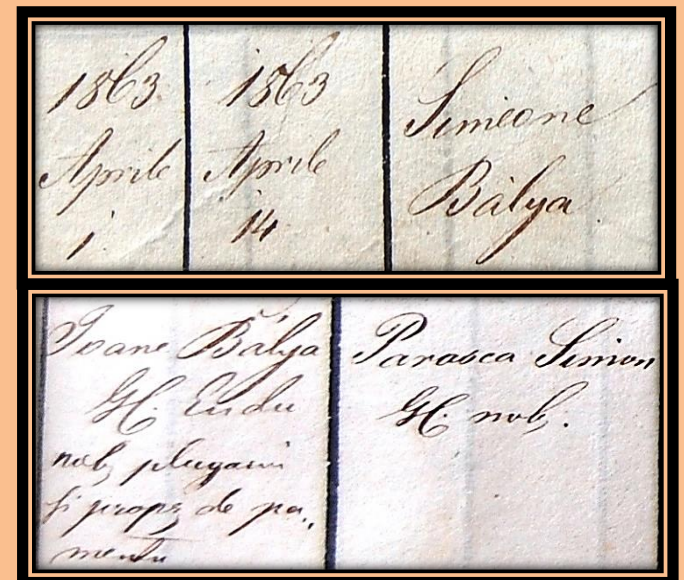 1863
Aprile
1
1863
Aprile
14
Simeone
Bálya
Ioane Bálya
G.C. Endu
nob, plugariu
si propr. de pa„
mentu
Parasca Simon
G.C. nob,.